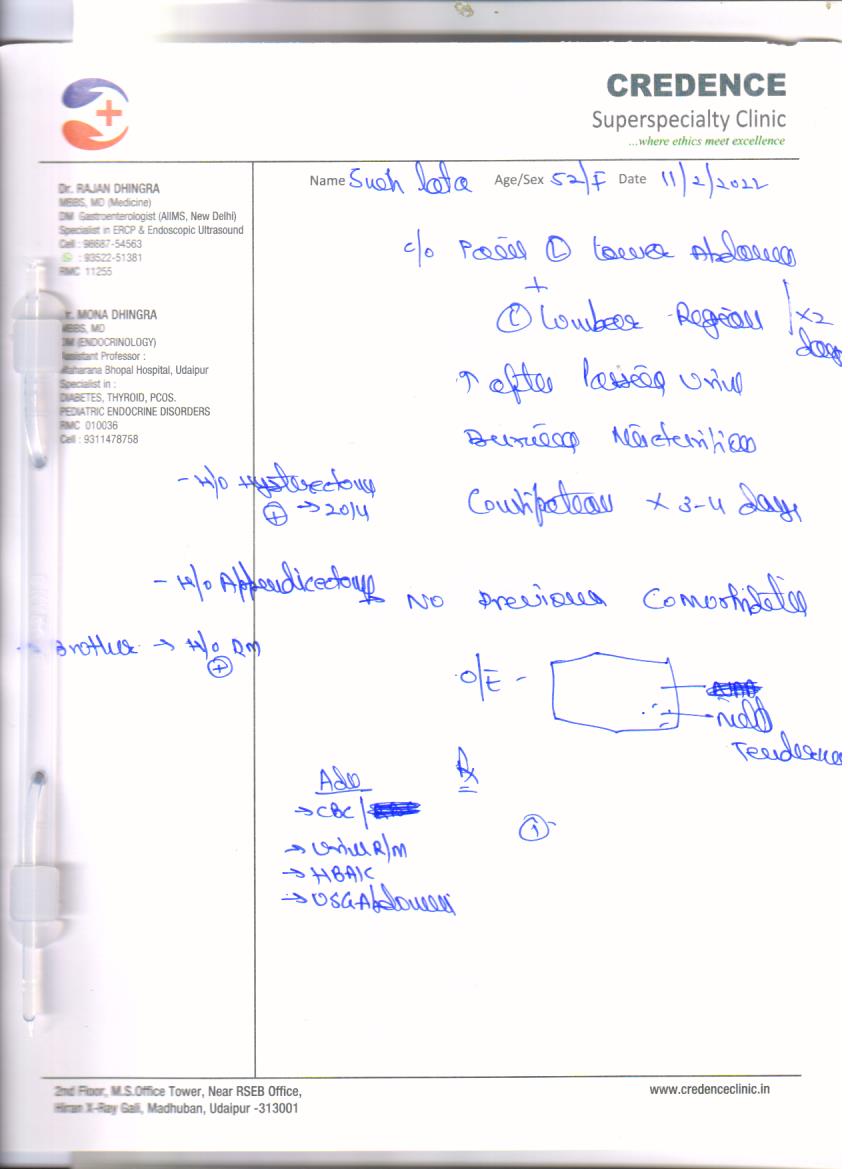 CREDENCE
Superspecialty Clinic
...where ethics meet excellence
Name Sneh lata Age/Sex 52/F Date 11/2/2022
Dr. RAJAN DHINGRA
MBBS, MD (Medicine)
DM Gastroenterologist (AIIMS, New Delhi)
Specialist in ERCP & Endoscopic Ultrasound
Cell : 98687-54563
: 93522-51381
RMC 11255
Dr. MONA DHINGRA
MBBS, MD
DM (ENDOCRINOLOGY)
Assistant Professor :
Maharana Bhopal Hospital, Udaipur
Specialist in :
DIABETES, THYROID, PCOS.
PEDIATRIC ENDOCRINE DISORDERS
RMC 010036
Cell : 9311478758
c/o Pain (L) lower Abdomen
+
(L) lumbar Region x2 days
↑ after passing urine
Burning Micturition
- H/o Hysterectomy
(+) → 2014
Constipation x 3-4 days
- H/o Appendicectomy
No Previous Comorbidities
Brother → H/o DM
(+)
O/E -
Mild
Tenderness
Rx
(1)
Adv
→ CBC/
→ Urine R/M
→ HBA1C
→ USG Abdomen
2nd Floor, M.S.Office Tower, Near RSEB Office,
Hiran X-Ray Gali, Madhuban, Udaipur -313001
www.credenceclinic.in